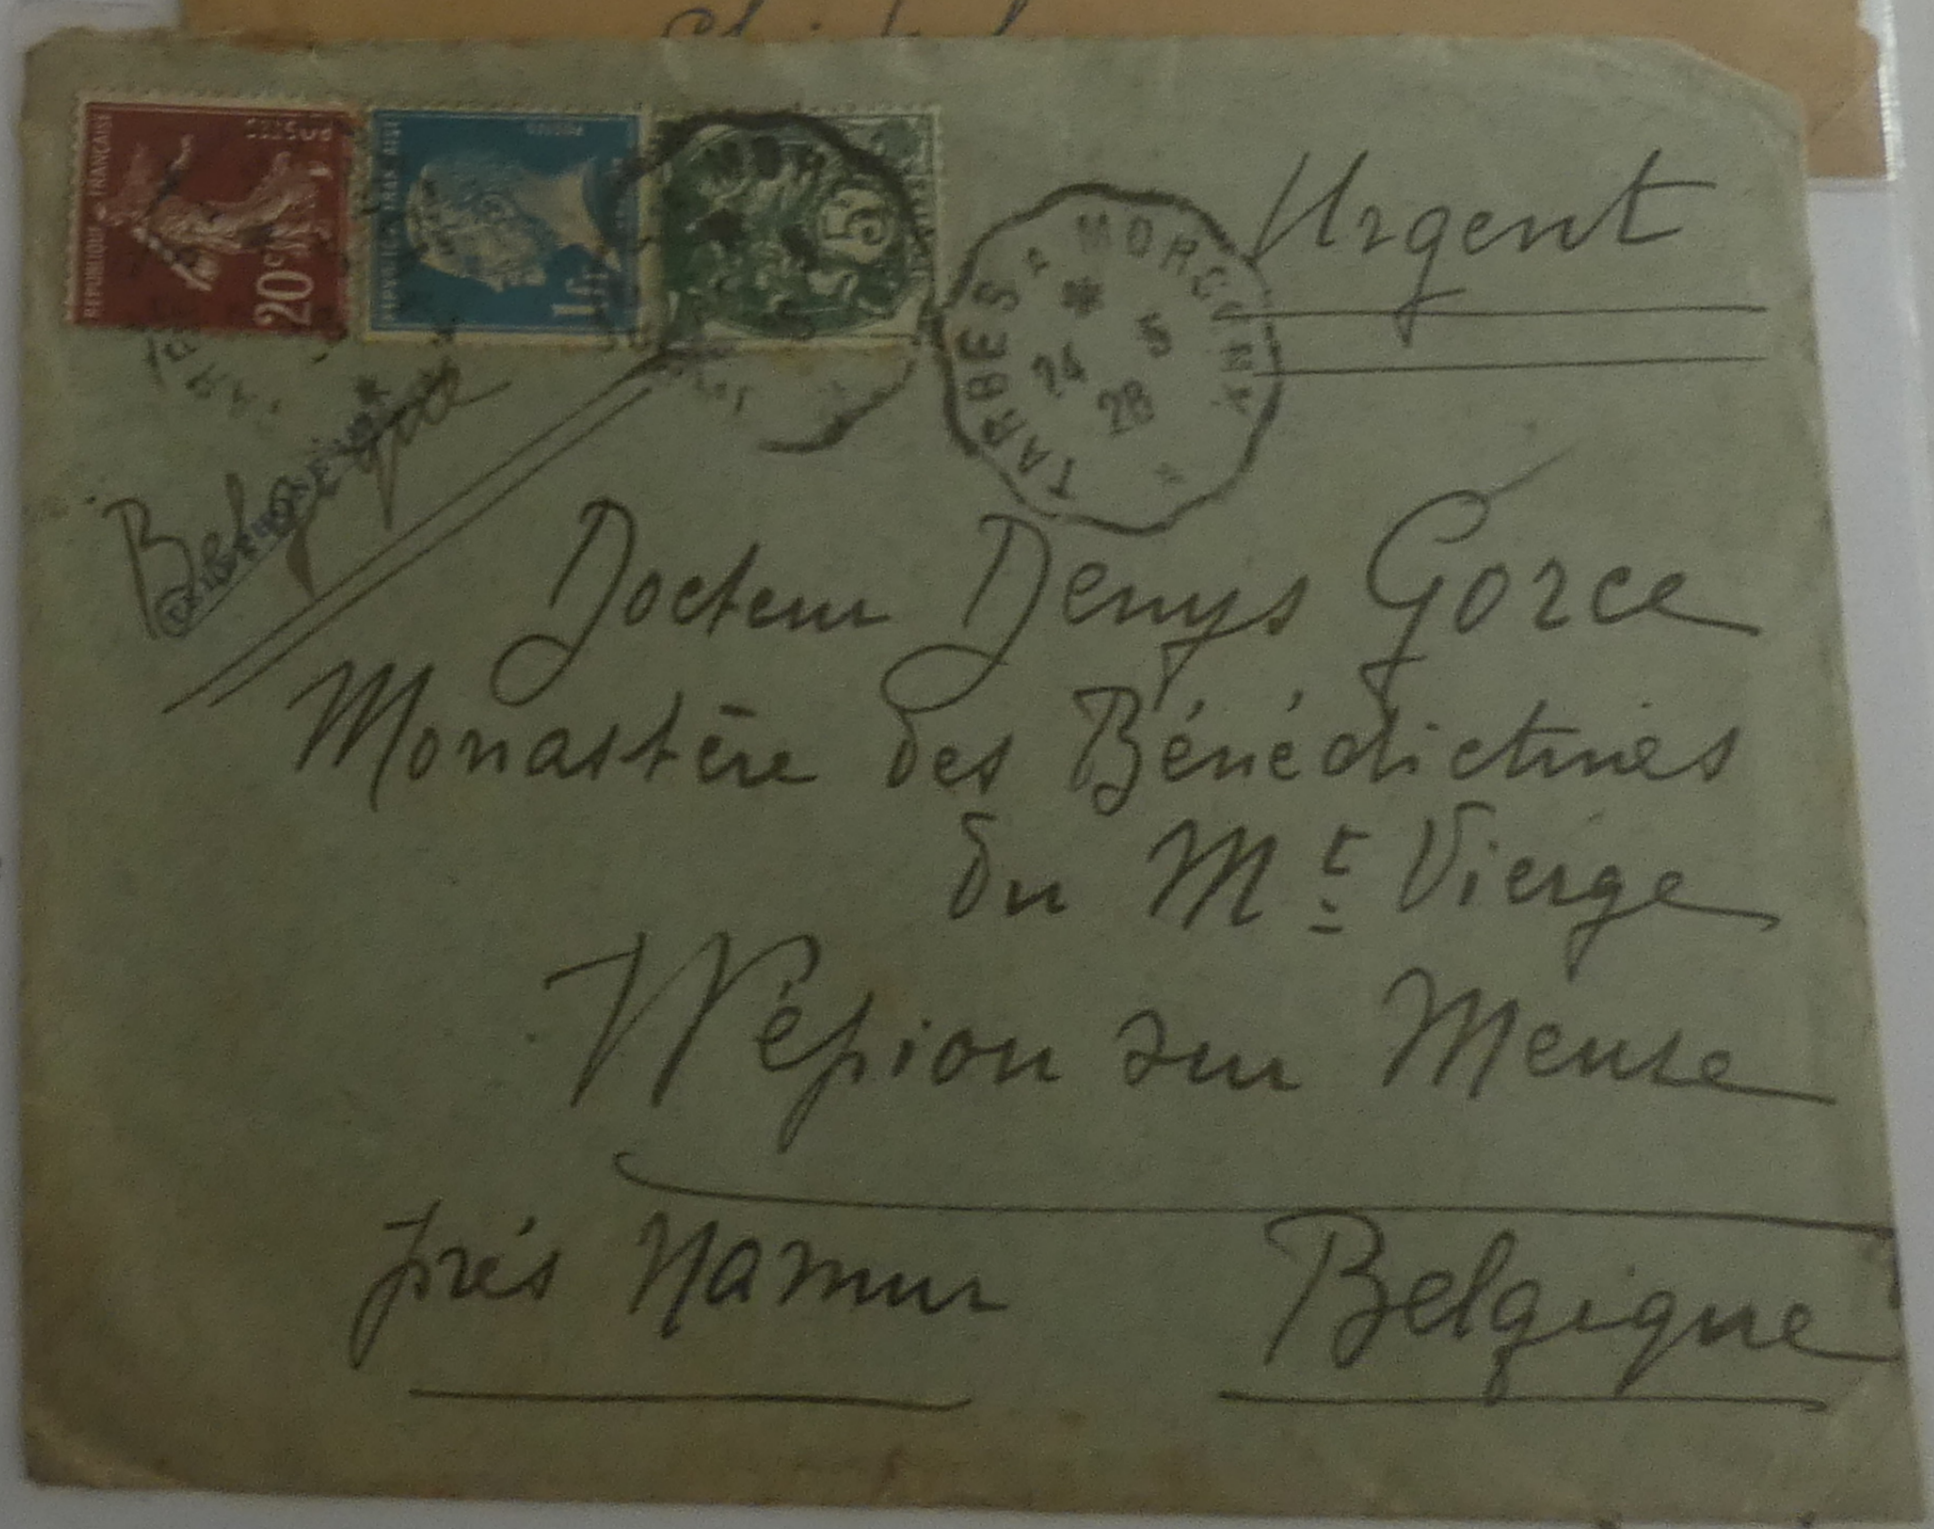 REPUBLIQUE FRANÇAISE
POSTES
20c
POSTES
1f
5c
MOR
TARBES A MORCENX
24 5
28
Urgent
Belgique
Docteur Denys Gorce
Monastère des Bénédictines
du Mt Vierge
Wépion sur Meuse
près Namur Belgique